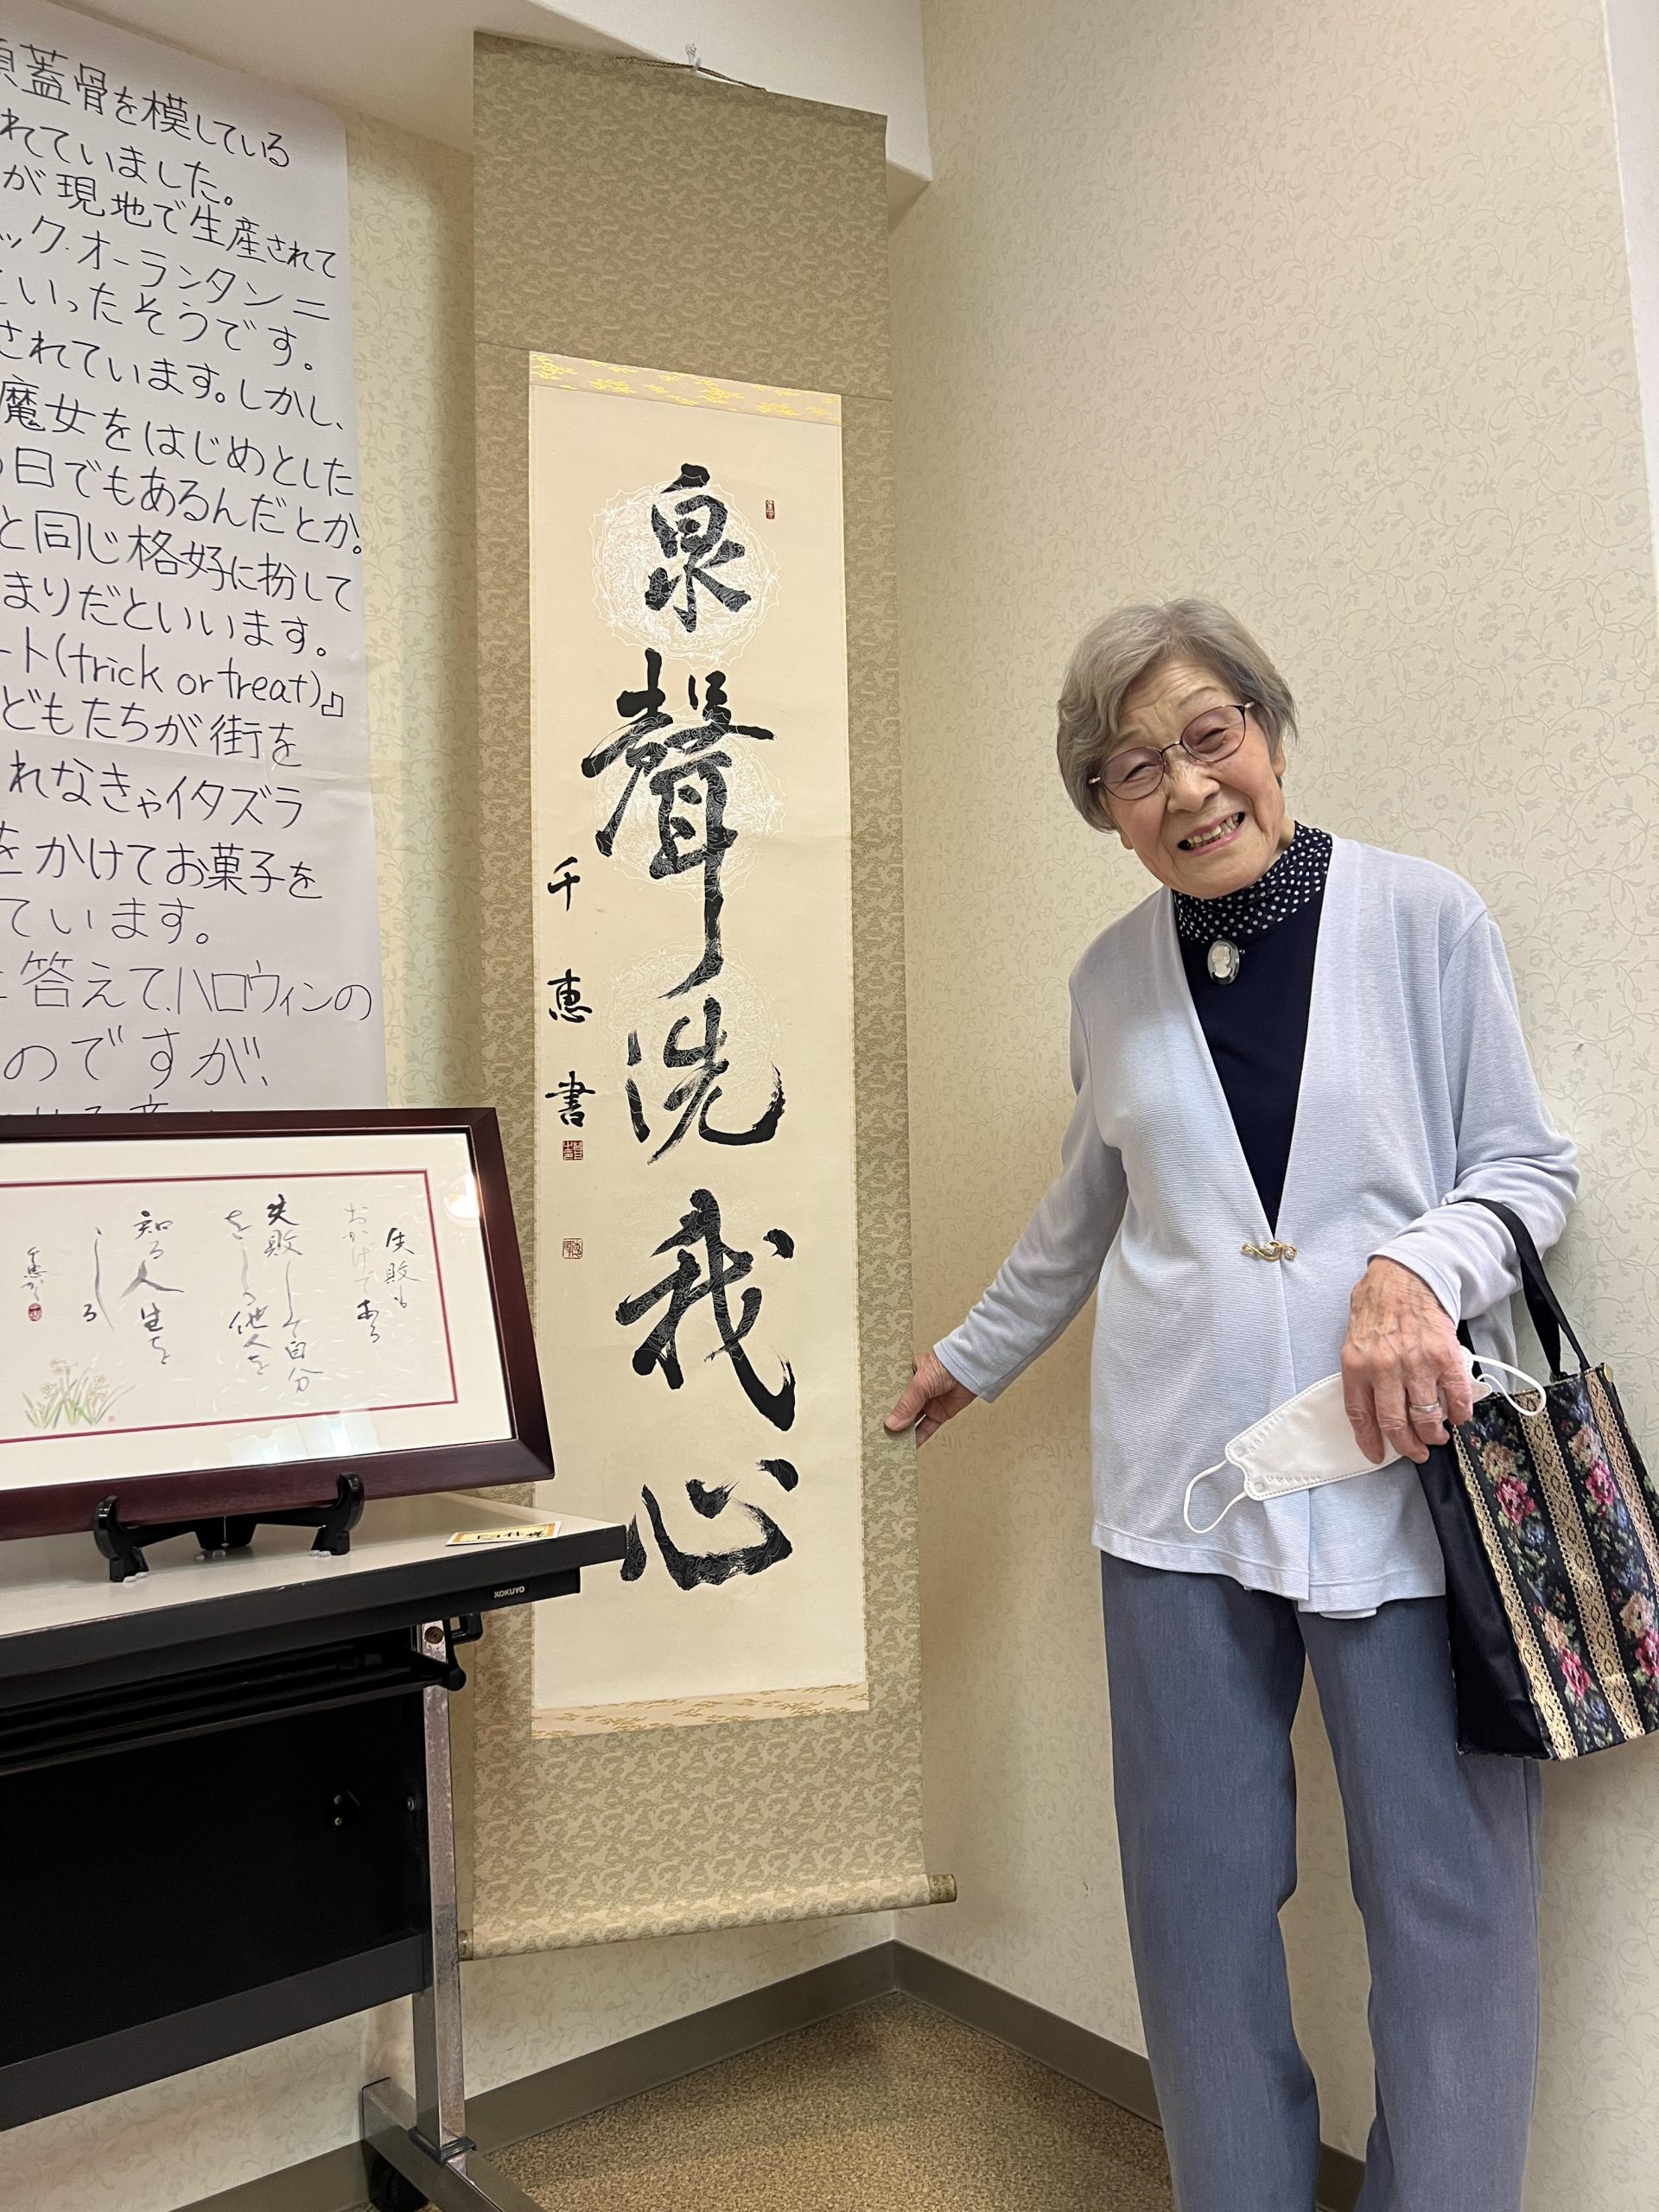 蓋骨を模している
れていました。
が現地で生産されて
ック・オーランタン=
いったそうです。
されています。しかし、
魔女をはじめとした
日でもあるんだとか。
と同じ格好に扮して
まりだといいます。
ート(trick or treat)』
どもたちが街を
れなきゃイタズラ
をかけてお菓子を
ています。
答えて、ハロウィンの
のですが、
泉聲洗我心
千恵書
失敗も
おかげである
失敗して自分
を
他人を
知る人生を
しる
千恵かく
KOKUYO